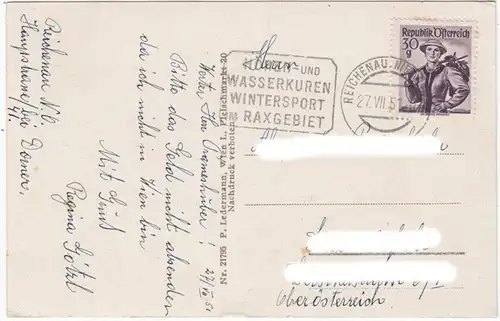 Reichenau N.Ö.
Hauptstraße / bei Dorner,
41.
27/VII 51
Werter Herr
Bitte das Geld nicht absenden
da ich nicht in Wien bin
Mit Gruß
Regina Götzl
Nr. 21795 P. Ledermann, Wien I., Fleischmarkt 20
Nachdruck verboten
UND
WASSERKUREN
WINTERSPORT
RAXGEBIET
REICHENAU, N
27.VII.5
Republik Österreich
30g
Herrn
Oberösterreich